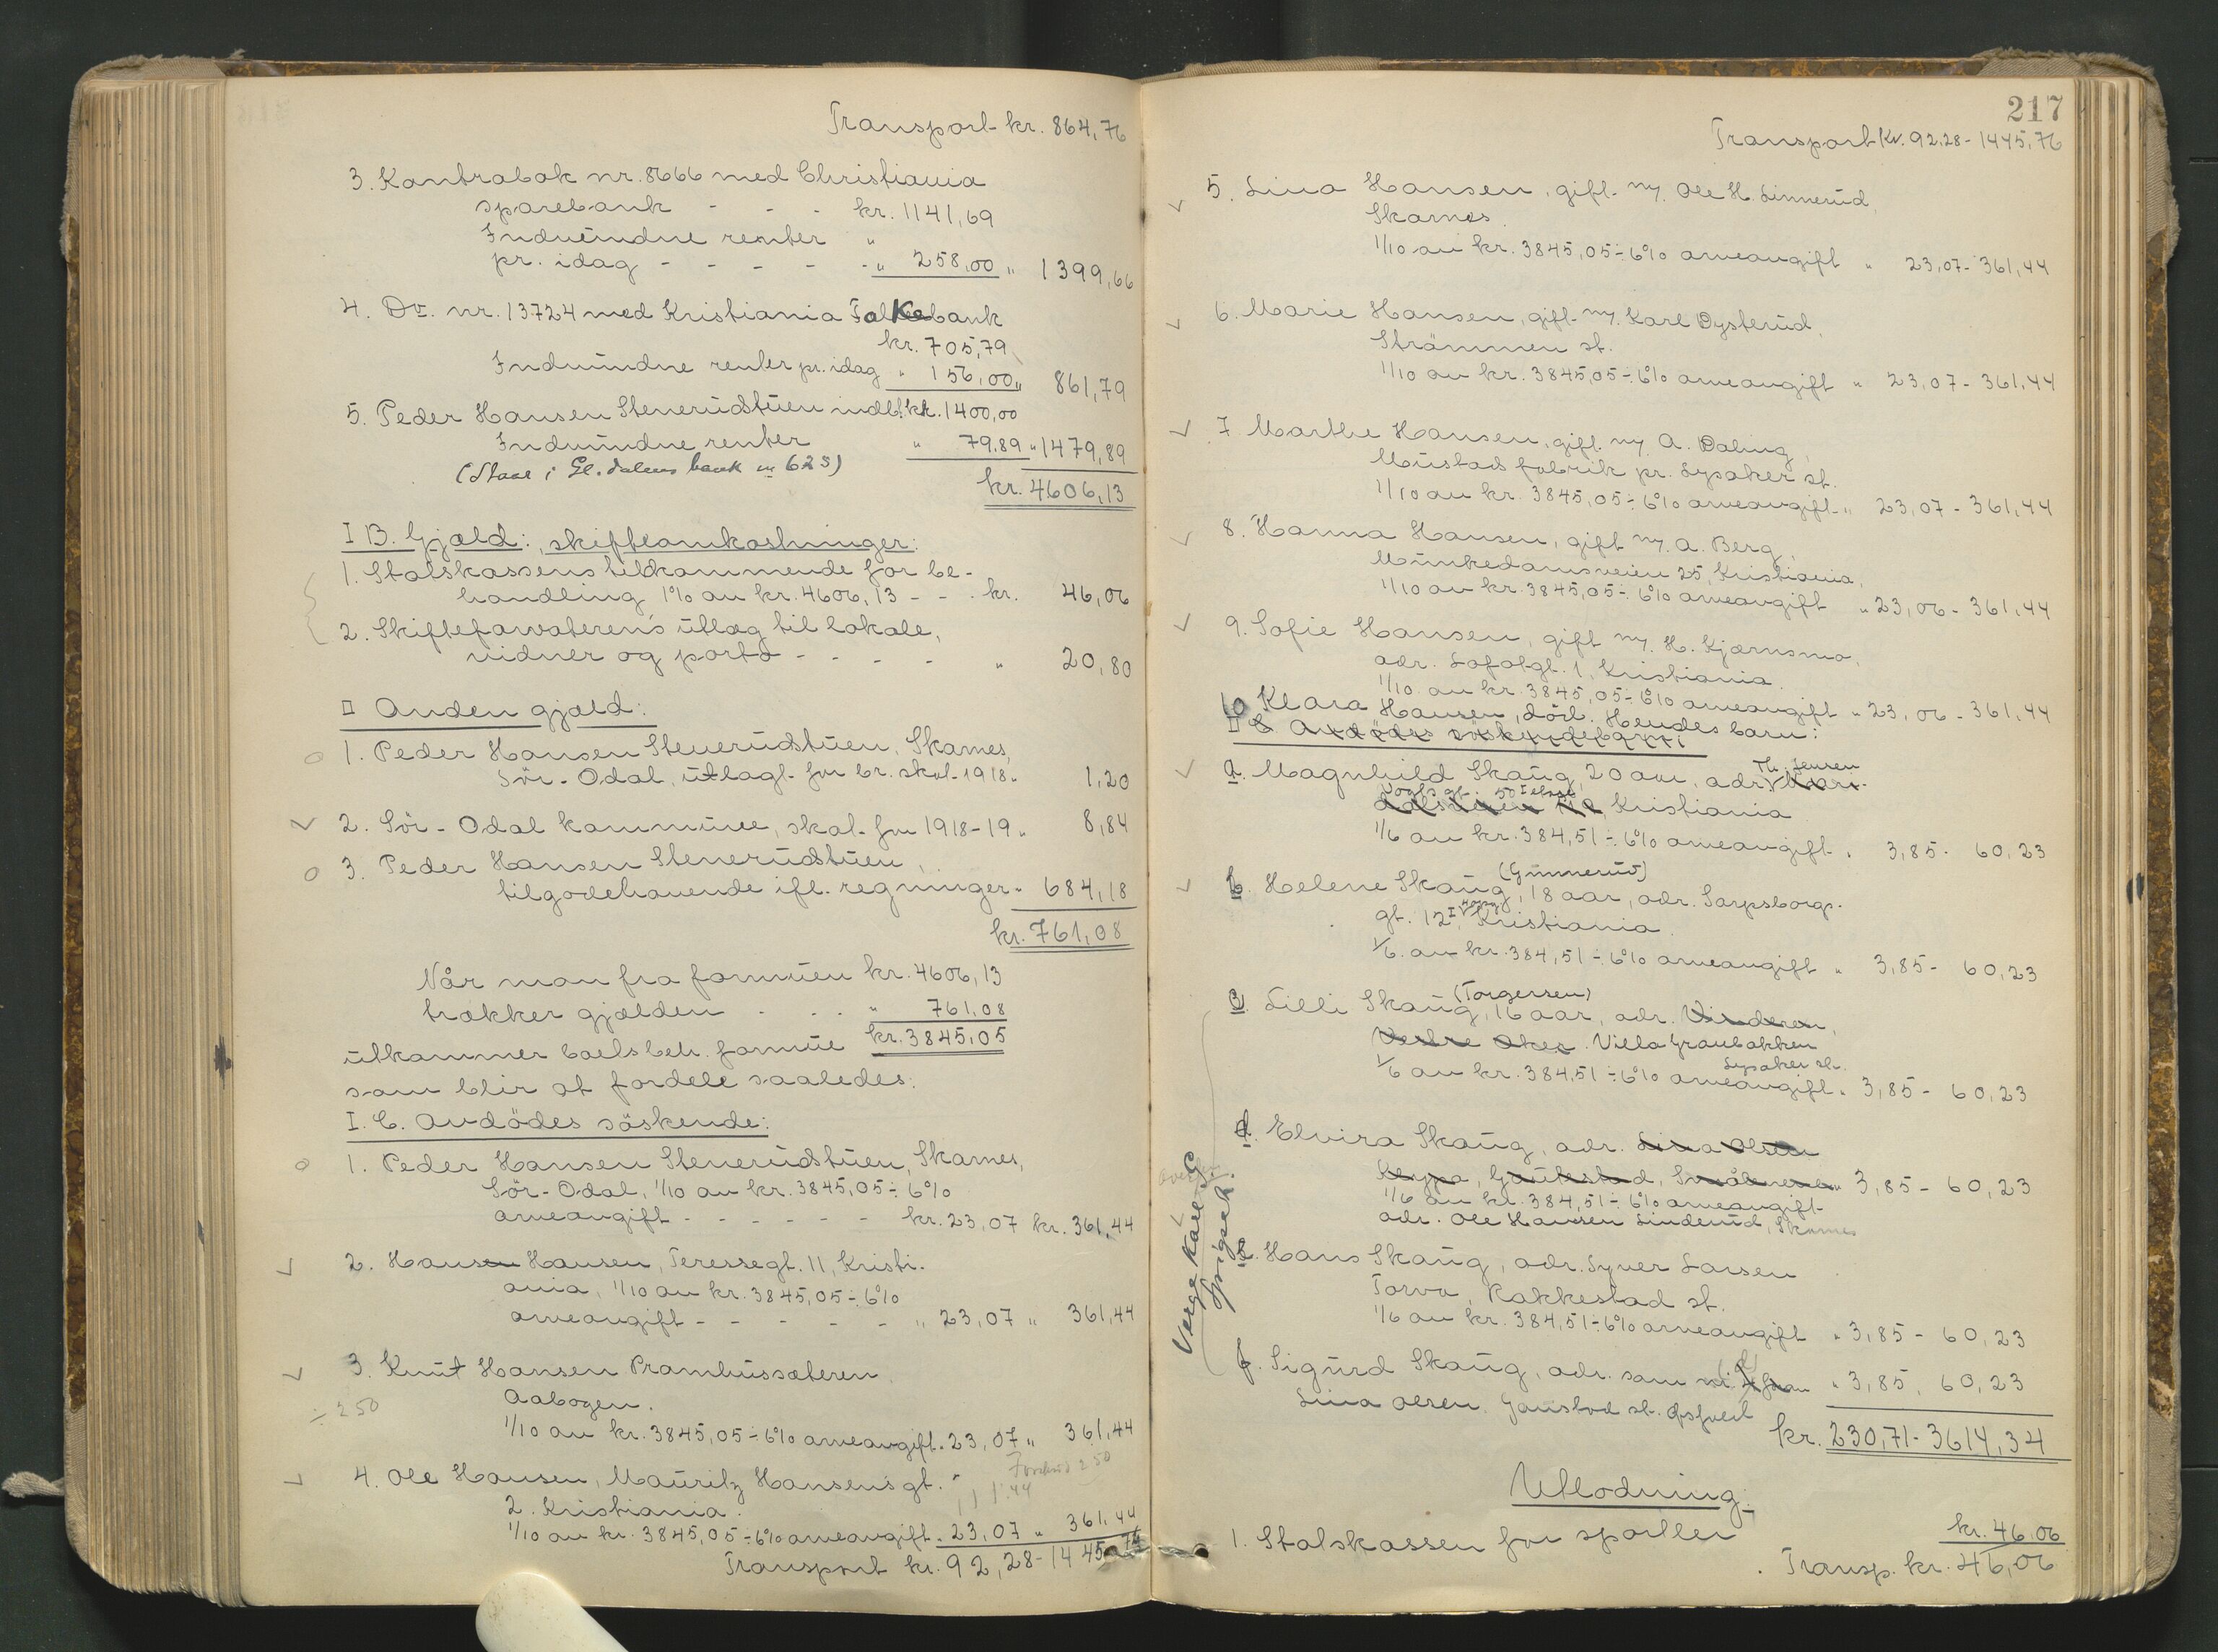 Transport kr. 864,76
3. Kontrabok nr. 8666 med Christiania
sparebank - - - kr. 1141,69
Indvundne renter "
pr. idag - - - - - " 258,00 " 1399,66
4. Do. nr. 13724 med Kristiania Folkebank
kr. 705,79
Indvundne renter pr. idag " 156,00 " 861,79
5. Peder Hansen Stenerudstuen indb. kr. 1400,00
Indvundne renter " 79,89 " 1479,89
(Staar i Gl. dalens bank nr 623)
kr. 4606,13
I B. Gjæld: skifteomkostninger:
1. Statskassens tilkommende for be-
handling 1% av kr. 4606,13 - - - kr. 46,06
2. Skifteforvalterens utlæg til lokale,
vidner og porto - - - - " 20,80
II Anden gjæld:
1. Peder Hansen Stenerudstuen, Skarnes,
Sör-Odal, utlagt for br. skat 1918 " 1,20
2. Sör-Odal kommune, skat for 1918-19 " 8,84
3. Peder Hansen Stenerudstuen,
tilgodehavende ifl. regninger " 684,18
kr. 761,08
Når man fra formuen kr. 4606,13
trækker gjælden - - - " 761,08
utkommer boets beh. formue kr. 3845,05
som blir at fordele saaledes:
I. C. Avdödes söskende:
1. Peder Hansen Stenerudstuen, Skarnes,
Sör-Odal, 1/10 av kr. 3845,05 ÷ 6%
arveavgift - - - - - - kr. 23,07 kr. 361,44
2. Hansen Hansen, Teressegt. 11, Kristi-
ania, 1/10 av kr. 3845,05 ÷ 6%
arveavgift - - - - - " 23,07 " 361,44
3. Knut Hansen Pramhussæteren
Aabogen.
÷ 250
1/10 av kr. 3845,05 ÷ 6% arveavgift " 23,07 " 361,44
Forskud 250
4. Ole Hansen, Mauritz Hansens gt.
111.44
2. Kristiania.
1/10 av kr. 3845,05 ÷ 6% arveavgift " 23,07 " 361,44
Transport kr. 92,28 - 1445,76
217
Transport Kr. 92,28 - 1445,76
5. Lina Hansen, gift m. Ole H. Linnerud,
Skarnes.
1/10 av kr. 3845,05 ÷ 6% arveavgift " 23,07 - 361,44
6. Marie Hansen, gift m. Karl Dysterud,
Strömmen st.
1/10 av kr. 3845,05 ÷ 6% arveavgift " 23,07 - 361,44
7 Marthe Hansen, gift m. A. Daling,
Mustad fabrik pr. Lysaker st.
1/10 av kr. 3845,05 ÷ 6% arveavgift " 23,07 - 361,44
8. Hanna Hansen, gift m. A. Berg,
Munkedamsveien 25, Kristiania,
1/10 av kr. 3845,05 ÷ 6% arveavgift " 23,06 - 361,44
9. Sofie Hansen, gift m. H. Kjærnsmo,
adr. Lofotgt. 1, Kristiania.
1/10 av kr. 3845,05 ÷ 6% arveavgift " 23,06 - 361,44
10 Klara Hansen, död. Hendes barn:
II C Avdödes söskendebarn:
a. Magnhild Skaug, 20 aar, adr. Th. Jensen
Vogts gt. 50 I etage, Kristiania
1/6 av kr. 384,51 ÷ 6% arveavgift " 3,85 - 60,23
(Gunnerud)
b. Helene Skaug, 18 aar, adr. Sarpsborg-
gt. 12 I, Kristiania.
1/6 av kr. 384,51 ÷ 6% arveavgift " 3,85 - 60,23
(Torgersen)
c. Lilli Skaug, 16 aar, adr. Vinderen,
Vestre Aker. Villa Graubakken
Lysaker st.
1/6 av kr. 384,51 ÷ 6% arveavgift " 3,85 - 60,23
d. Elvira Skaug, adr. Lina Olsen
Keppa, Gautestad, Smålenene " 3,85 - 60,23
1/6 av kr. 384,51 ÷ 6% arveavgift
adr. Ole Hansen Linderud, Skarnes
e. Hans Skaug, adr. Syver Larsen
Torva, Rakkestad st.
1/6 av kr. 384,51 ÷ 6% arveavgift " 3,85 - 60,23
f. Sigurd Skaug, adr. som " 3,85 - 60,23
Lina Olsen, Gaustad st.
Verge Kåre
kr. 230,71 - 3614,34
Utlodning.
1. Statskassen for sportler kr. 46,06
Transp. kr. 46,06